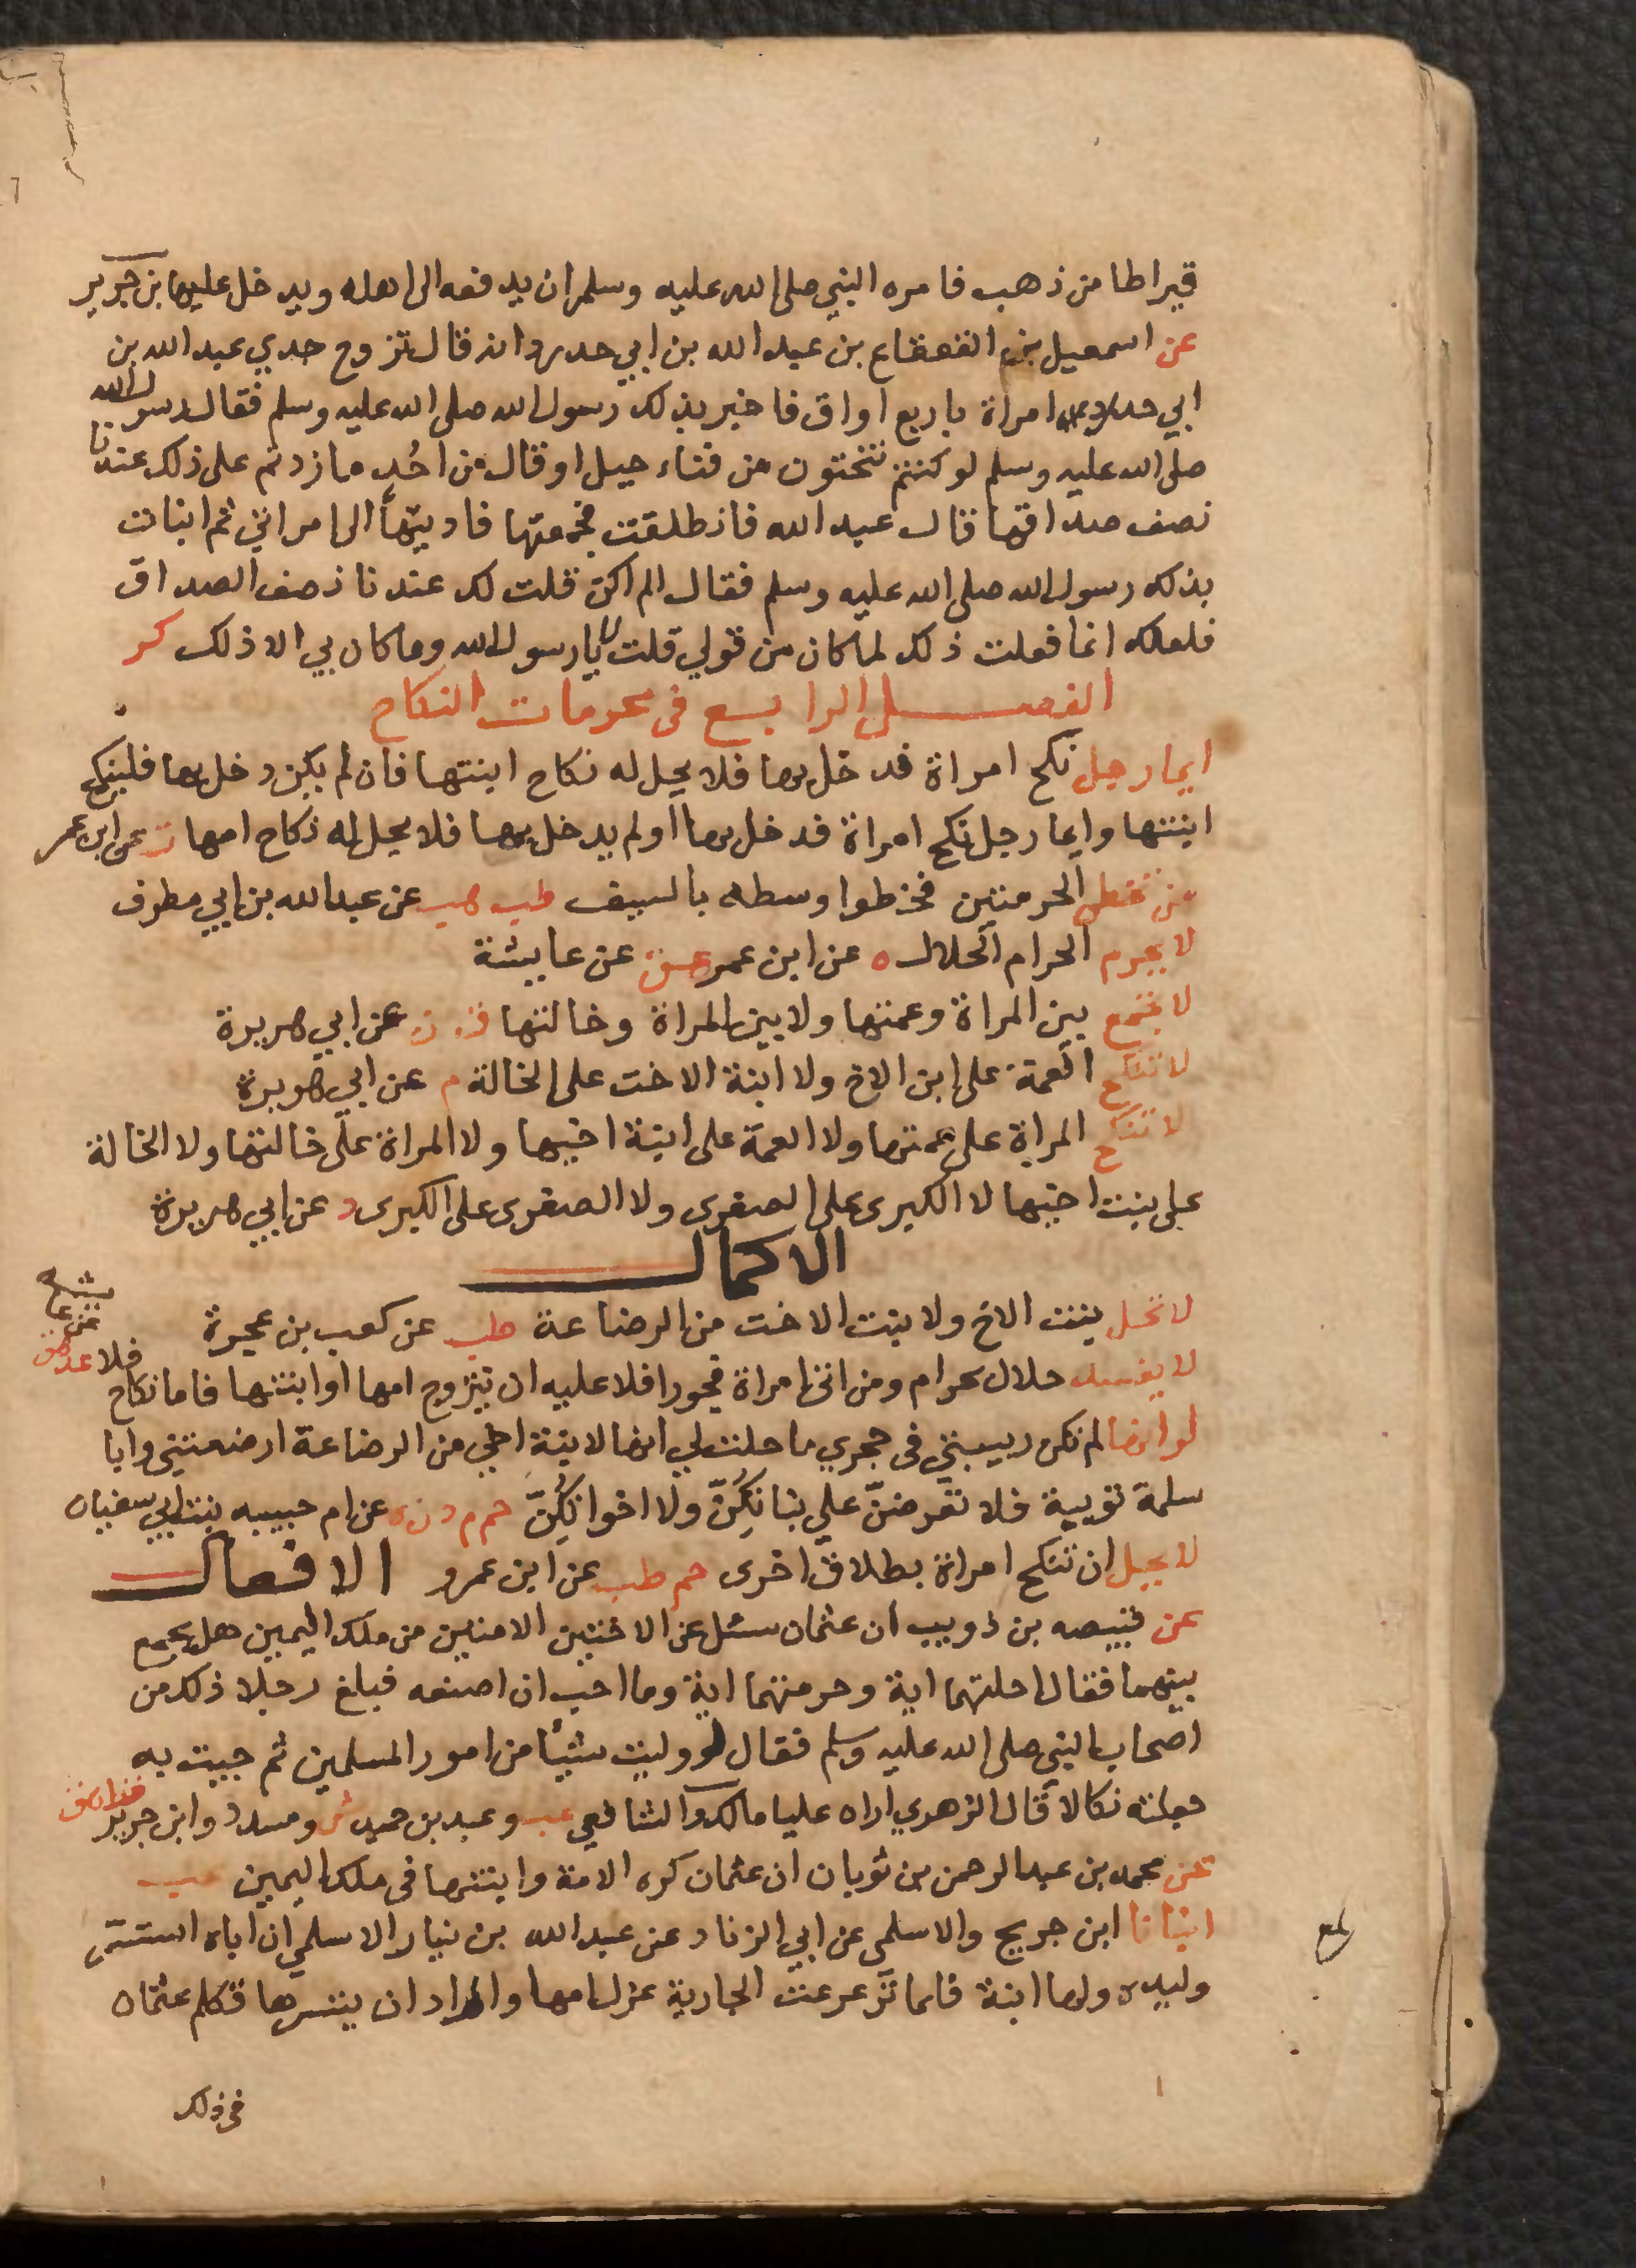 قيراطا من ذهب فامره النبي صلى الله عليه وسلم ان يدفعه الى اهله ويدخل عليها ابن جرير
عن اسمعيل بن القعقاع بن عبد الله بن ابي حدرد انه قال تزوج جدي عبد الله بن
ابي حدرد امراة باربع اواق فاخبر بذلك رسول الله صلى الله عليه وسلم فقال رسول الله
صلى الله عليه وسلم لو كنتم تنحتون من قناء جبل او قال من احُد ما زدتم على ذلك عندنا
نصف صداقها قال عبد الله فانطلقت فجمعتها فاديتها الى امراتي ثم انبات
بذلك رسول الله صلى الله عليه وسلم فقال الم اكن قلت لك عندنا نصف الصداق
فلعلك انما فعلت ذلك لما كان من قولي قلت لا يا رسول الله وما كان بي الا ذلك كر
الفصل الرابع في محرمات النكاح
ايما رجل نكح امراة فدخل بها فلا يحل له نكاح ابنتها فان لم يكن دخل بها فلينكح
ابنتها وايما رجل نكح امراة فدخل بها او لم يدخل بها فلا يحل له نكاح امها ت عن ابن عمر
من تخطى الحرمتين فخطوا وسطه بالسيف طب هب عن عبد الله بن ابي مطرف
لا يحرم الحرام الحلال ه عن ابن عمر هق عن عايشة
لا يجمع بين المراة وعمتها ولا بين المراة وخالتها ق ن عن ابي هريرة
لا تنكح العمة على ابن الاخ ولا ابنة الاخت على الخالة م عن ابي هريرة
لا تنكح المراة على عمتها ولا العمة على ابنة اخيها ولا المراة على خالتها ولا الخالة
على بنت اختها لا الكبرى على الصغرى ولا الصغرى على الكبرى د عن ابي هريرة
الاكمال
لا تحل بنت الاخ ولا بنت الاخت من الرضاعة طب عن كعب بن عجرة
لا يفسد حلال بحرام ومن اتى امراة فجورا فلا عليه ان يتزوج امها او ابنتها فاما نكاح فلا عد هق عن عايشة
لو انها لم تكن ربيبتي في حجري ما حلت لي انها لابنة اخي من الرضاعة ارضعتني وابا
سلمة ثويبة فلا تعرضنّ علي بناتكُنّ ولا اخواتكُنّ حم م د ن ه عن ام حبيبه بنت ابي سفيان
لا يحل ان تنكح امراة بطلاق اخرى حم طب عن ابن عمرو الافعال
عن قبيصه بن ذويب ان عثمان سئل عن الاختين الامتين من ملك اليمين هل يجمع
بينهما فقال احلتهما اية وحرمتهما اية وما احب ان اصنعه فبلغ رجلا ذلك من
اصحاب النبي صلى الله عليه وسلم فقال لو وليت شيئا من امور المسلمين ثم جيت به
جعلته نكالا قال الزهري اراه عليا مالك والشافعي عب وعبد بن حميد ش ومسدد وابن جرير قط هق
عن محمد بن عبد الرحمن بن ثوبان ان عثمان كره الامة وابنتها في ملك اليمين عب
انبانا ابن جريج والاسلمي عن ابي الزناد عن عبد الله بن نيار الاسلمي ان اباه استسر
وليده ولها ابنة فلما ترعرعت الجارية عزل امها واراد ان يتسرها فكلم عثمان
في ذلك